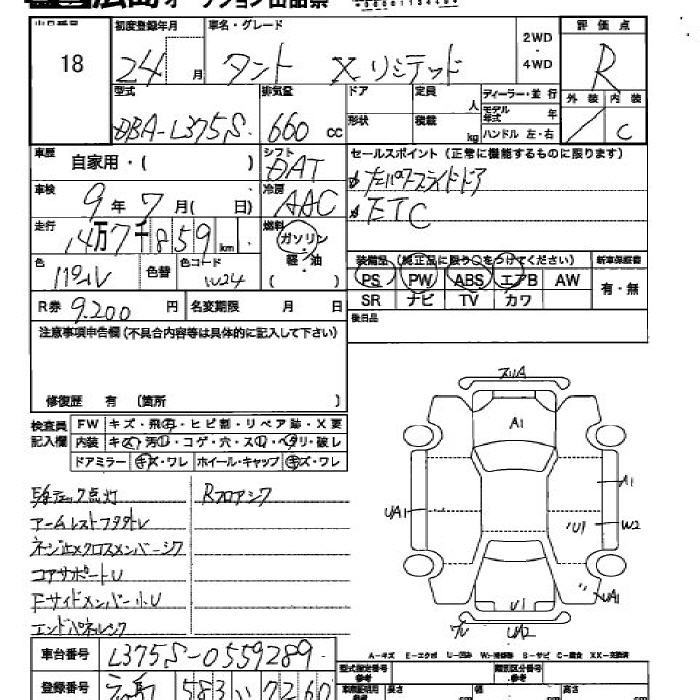 広島 オークション出品票
出品番号 初度登録年月 車名・グレード 2WD・4WD 評価点
18 24 月 タント X リミテッド R
型式 排気量 ドア 定員 人 ディーラー・並行 外装 内装
DBA-L375S 660 cc 形状 積載 kg モデル年式 年 ハンドル 左・右 C
車歴 自家用・( ) シフト DAT セールスポイント (正常に機能するものに限ります)
車検 9年7月( 日) 冷房 AAC
ETC
走行 14万7千859 km 燃料 ガソリン・軽・油 ( )
色 色替 色コード W24
装備品 (純正品に限り○をつけてください) 新車保証書
PS PW ABS エアB AW 有・無
SR ナビ TV カワ
R券 9.200 円 名変期限 月 日 後日品
注意事項申告欄 (不具合内容等は具体的に記入して下さい)
修復歴 有 (箇所 )
検査員記入欄 FW キズ・飛石・ヒビ割・リペア跡・X要
内装 キズ・汚れ・コゲ・穴・スレ・ヘタリ・破レ
ドアミラー キズ・ワレ ホイール・キャップ キズ・ワレ
Rフロアシワ
コアサポートU
エンドパネルシワ
A1
UA1 A1
U1 W2
UA1
U1
UA2
A-キズ E-エクボ U-凹み W-補修跡 S-サビ C-腐食 XX-交換済
車台番号 L375S-0559289
登録番号 583 い 7260
型式指定番号 参考 類別区分番号 参考
長さ cm 幅 cm 高さ cm